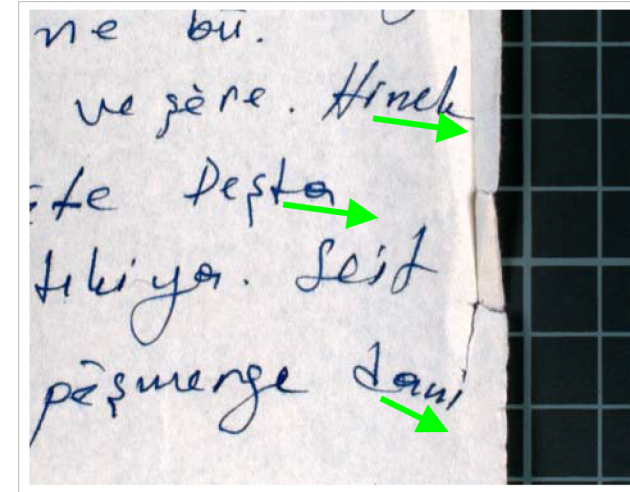 ne bû.
ve şêre. Hinek
Deşta
tikiya. Seit
pêşmerge dani